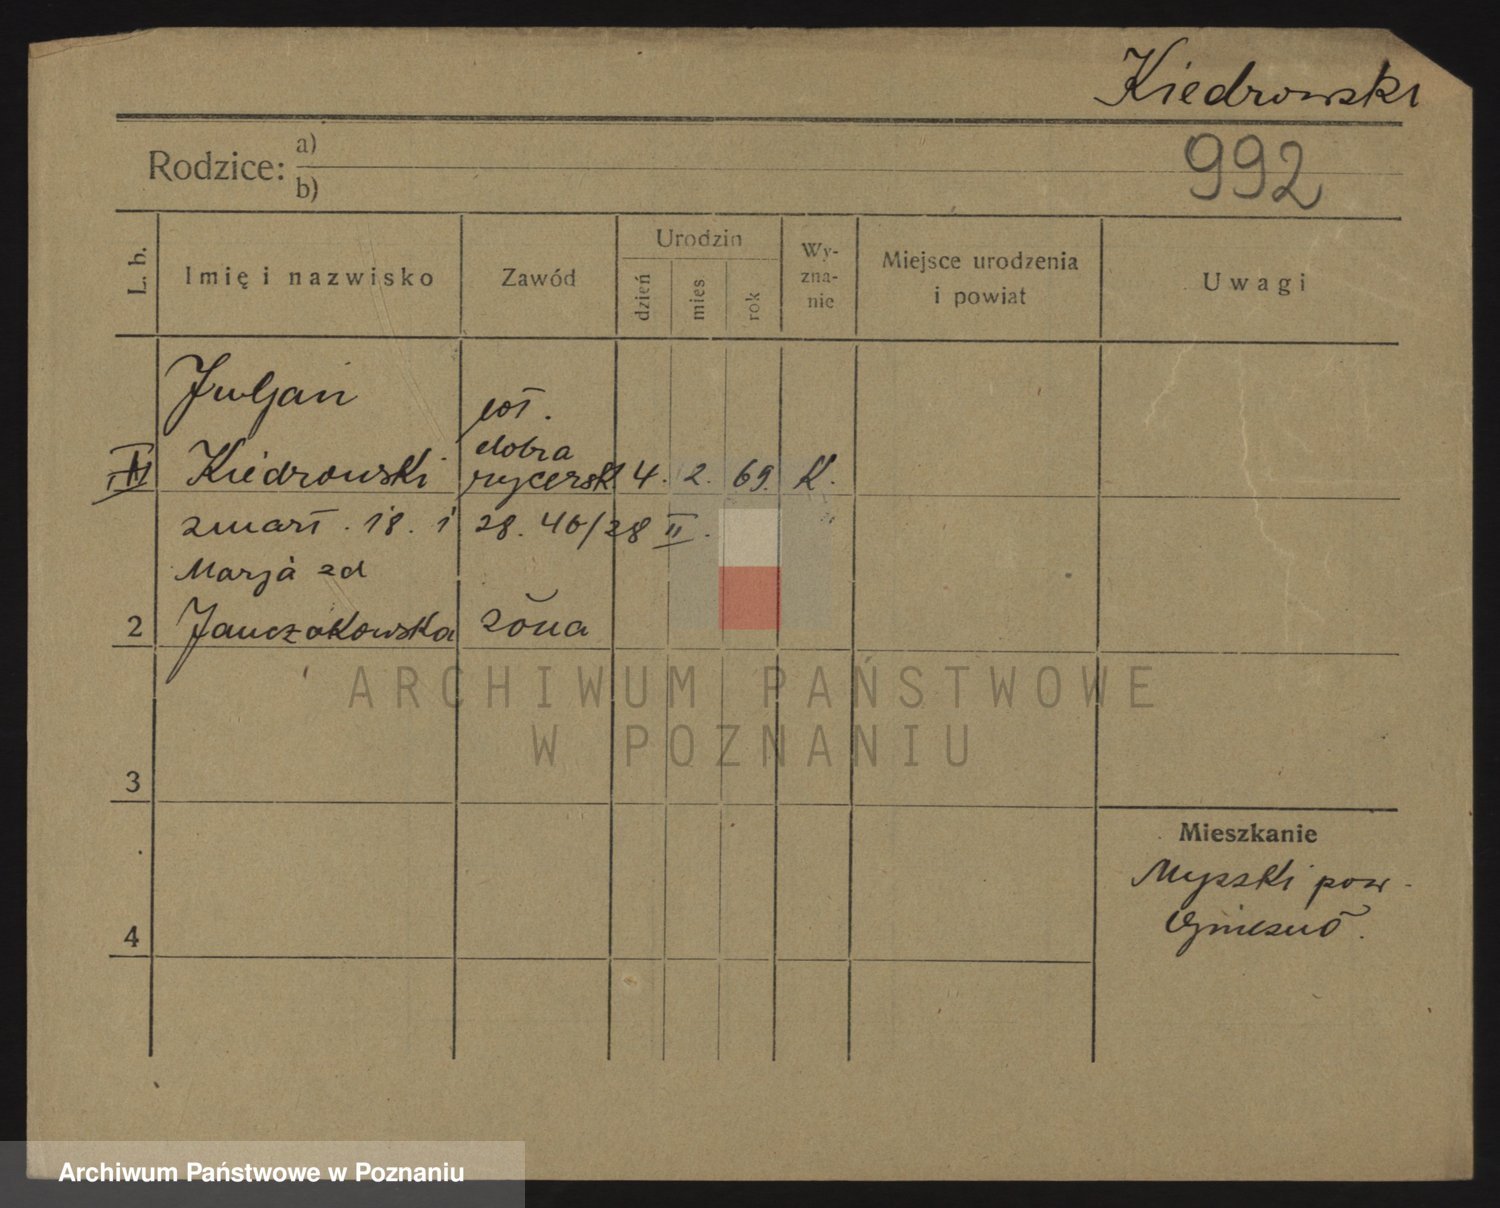 Kiedrowski
Rodzice: a)
b)
992
L. b.
Imię i nazwisko
Zawód
Urodzin
dzień
mies
rok
Wy-
zna-
nie
Miejsce urodzenia
i powiat
Uwagi
Juljan
Kiedrowski
wł.
dobra
rycersk
4. 2. 69. K.
zmarł. 18. 1 28. 40/28 II.
Marja zd
2 Janczakowska żona
3
4
Mieszkanie
Myszki pow.
Gniezno.
ARCHIWUM PAŃSTWOWE
W POZNANIU
Archiwum Państwowe w Poznaniu